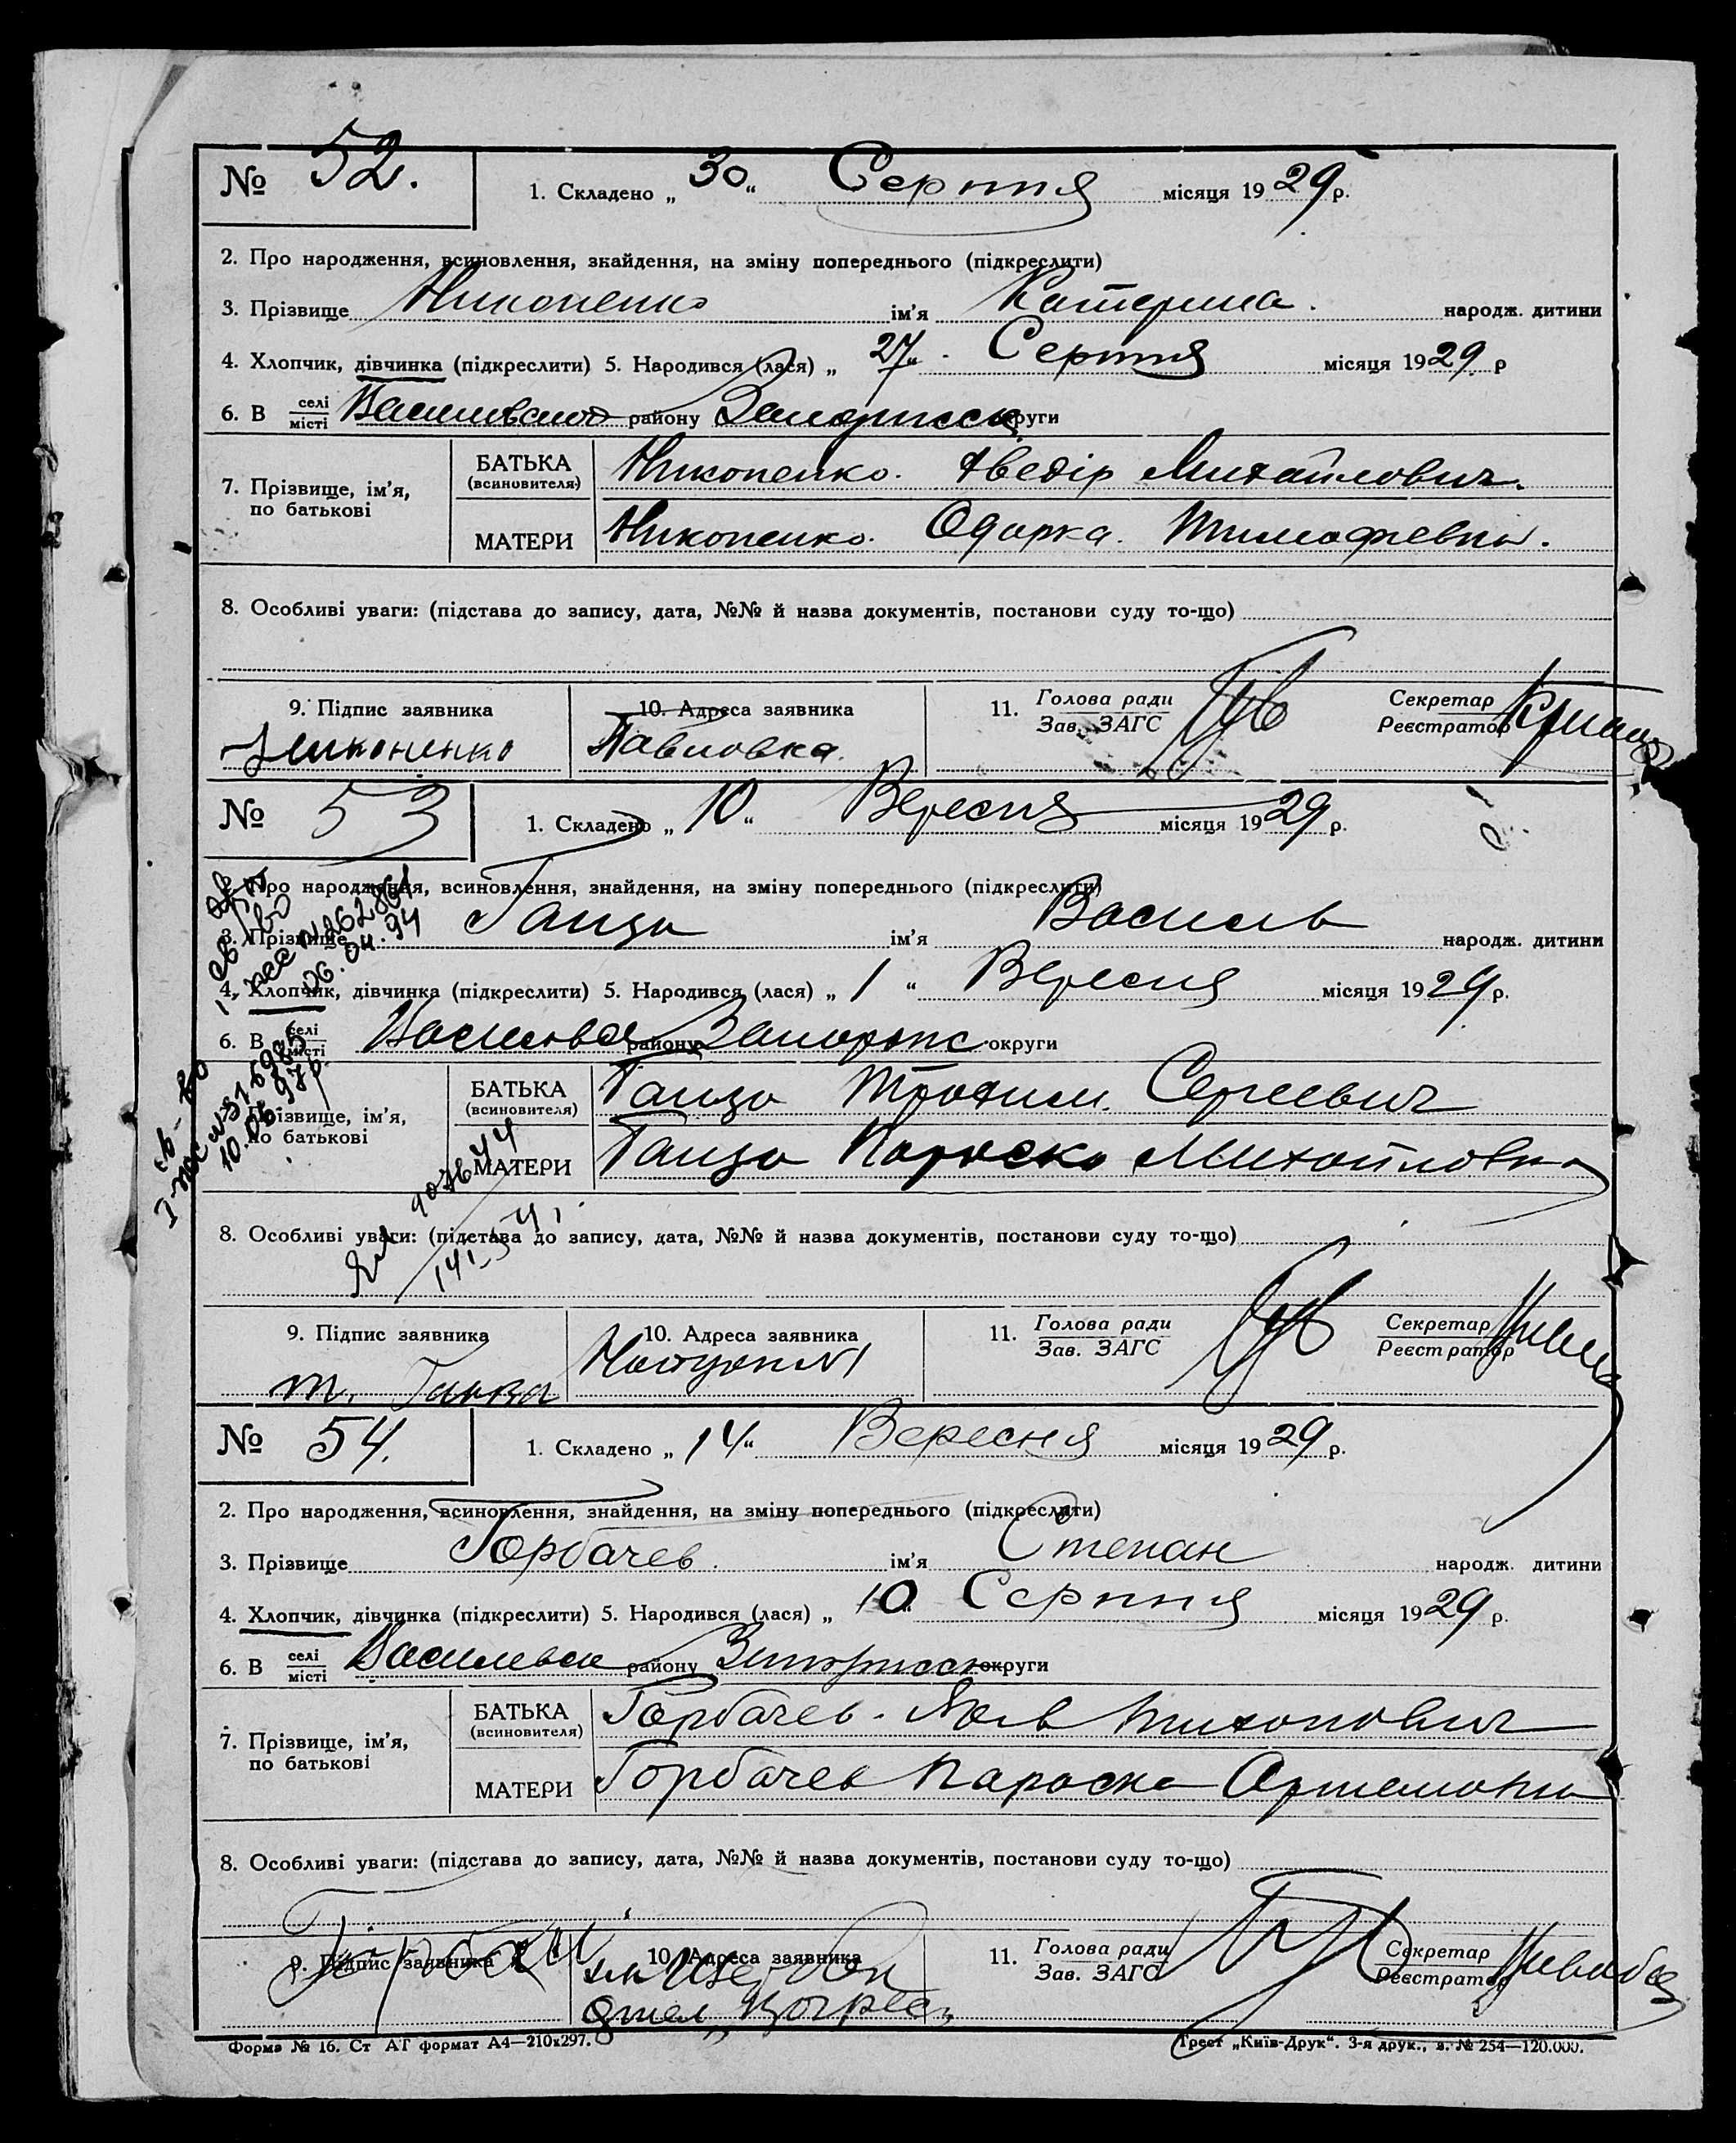 № 52.
1. Складено „ 30 “ Серпня місяця 19 29 р.
2. Про народження, всиновлення, знайдення, на зміну попереднього (підкреслити)
3. Прізвище Никопенко ім'я Катерина. народж. дитини
4. Хлопчик, дівчинка (підкреслити) 5. Народився (лася) „ 27 “ Серпня місяця 19 29 р
6. В селі місті району округи
7. Прізвище, ім'я, по батькові
БАТЬКА (всиновителя) Никопенко. Хведір Михайлович.
МАТЕРИ Никопенко. Одарка. Тимофіевна.
8. Особливі уваги: (підстава до запису, дата, №№ й назва документів, постанови суду то-що)
9. Підпис заявника 10. Адреса заявника 11. Голова ради Зав. ЗАГС Секретар Реєстратор
Павловка.
№ 53
1. Складено „ 10 “ Вересня місяця 19 29 р.
2. Про народження, всиновлення, знайдення, на зміну попереднього (підкреслити)
3. Прізвище Ганза ім'я Василь народж. дитини
4. Хлопчик, дівчинка (підкреслити) 5. Народився (лася) „ 1 “ Вересня місяця 19 29 р.
6. В селі місті району Запоріж округи
7. Прізвище, ім'я, по батькові
БАТЬКА (всиновителя) Ганза Трохим. Сергеевич
МАТЕРИ Ганза Параска Михайловна
06.04.94
8. Особливі уваги: (підстава до запису, дата, №№ й назва документів, постанови суду то-що)
9. Підпис заявника 10. Адреса заявника 11. Голова ради Зав. ЗАГС Секретар Реєстратор
т. Ганза
№ 54.
1. Складено „ 14 “ Вересня місяця 19 29 р.
2. Про народження, всиновлення, знайдення, на зміну попереднього (підкреслити)
3. Прізвище Горбачев. ім'я Степан народж. дитини
4. Хлопчик, дівчинка (підкреслити) 5. Народився (лася) „ 10 “ Серпня місяця 19 29 р.
6. В селі місті району округи
7. Прізвище, ім'я, по батькові
БАТЬКА (всиновителя) Горбачев. Тихонович
МАТЕРИ Горбачев Параска Артемовна
8. Особливі уваги: (підстава до запису, дата, №№ й назва документів, постанови суду то-що)
9. Підпис заявника 10. Адреса заявника 11. Голова ради Зав. ЗАГС Секретар Реєстратор
Форма № 16. Ст АГ формат А4—210х297.
Трест „Київ-Друк“. 3-я друк., з. № 254—120.000.